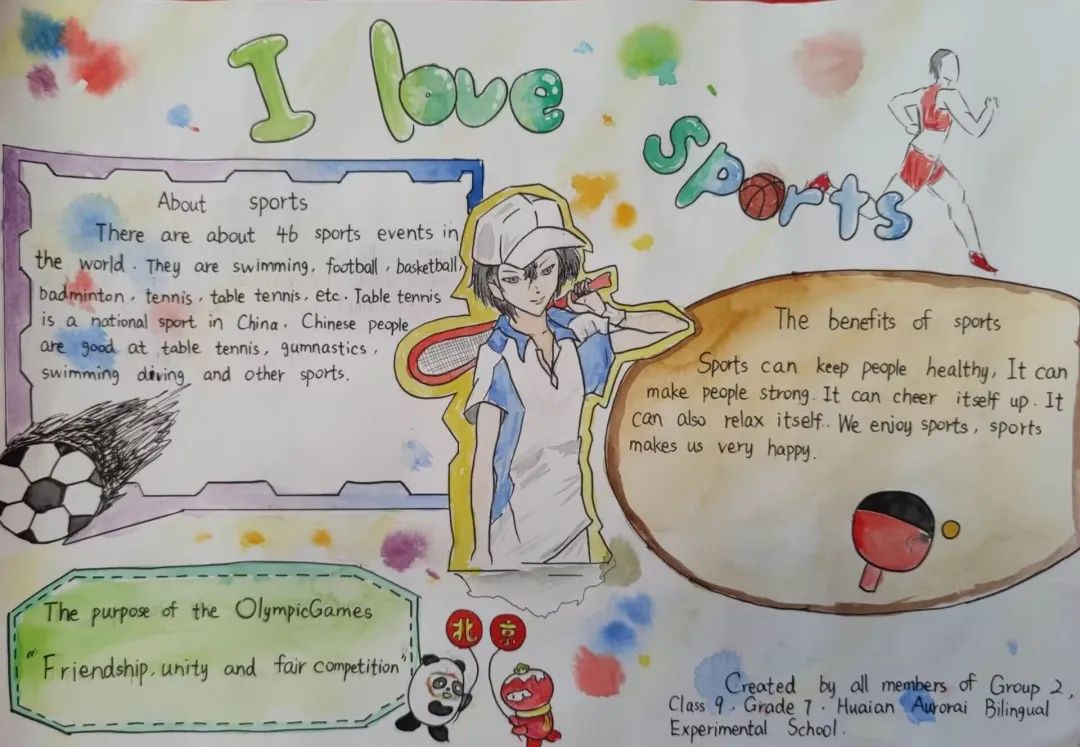 I love
sports
About sports
There are about 46 sports events in
the world. They are swimming, football, basketball,
badminton, tennis, table tennis, etc. Table tennis
is a national sport in China. Chinese people
are good at table tennis, gumnastics,
swimming diving and other sports.
The benefits of sports
Sports can keep people healthy, It can
make people strong. It can cheer itself up. It
can also relax itself. We enjoy sports, sports
makes us very happy.
The purpose of the OlympicGames
"Friendship, unity and fair competition"
北京
Created by all members of Group 2,
Class 9, Grade 7. Huaian Aurorai Bilingual
Experimental School.